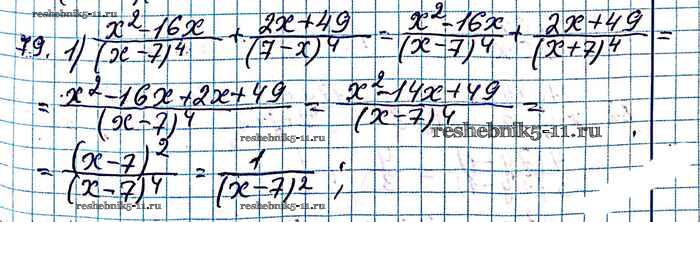 79. 1) \frac{x^2-16x}{(x-7)^4} + \frac{2x+49}{(7-x)^4} = \frac{x^2-16x}{(x-7)^4} + \frac{2x+49}{(x+7)^4} =
= \frac{x^2-16x+2x+49}{(x-7)^4} = \frac{x^2-14x+49}{(x-7)^4} =
reshebnik5-11.ru
reshebnik5-11.ru
= \frac{(x-7)^2}{(x-7)^4} = \frac{1}{(x-7)^2} ;
reshebnik5-11.ru
reshebnik5-11.ru